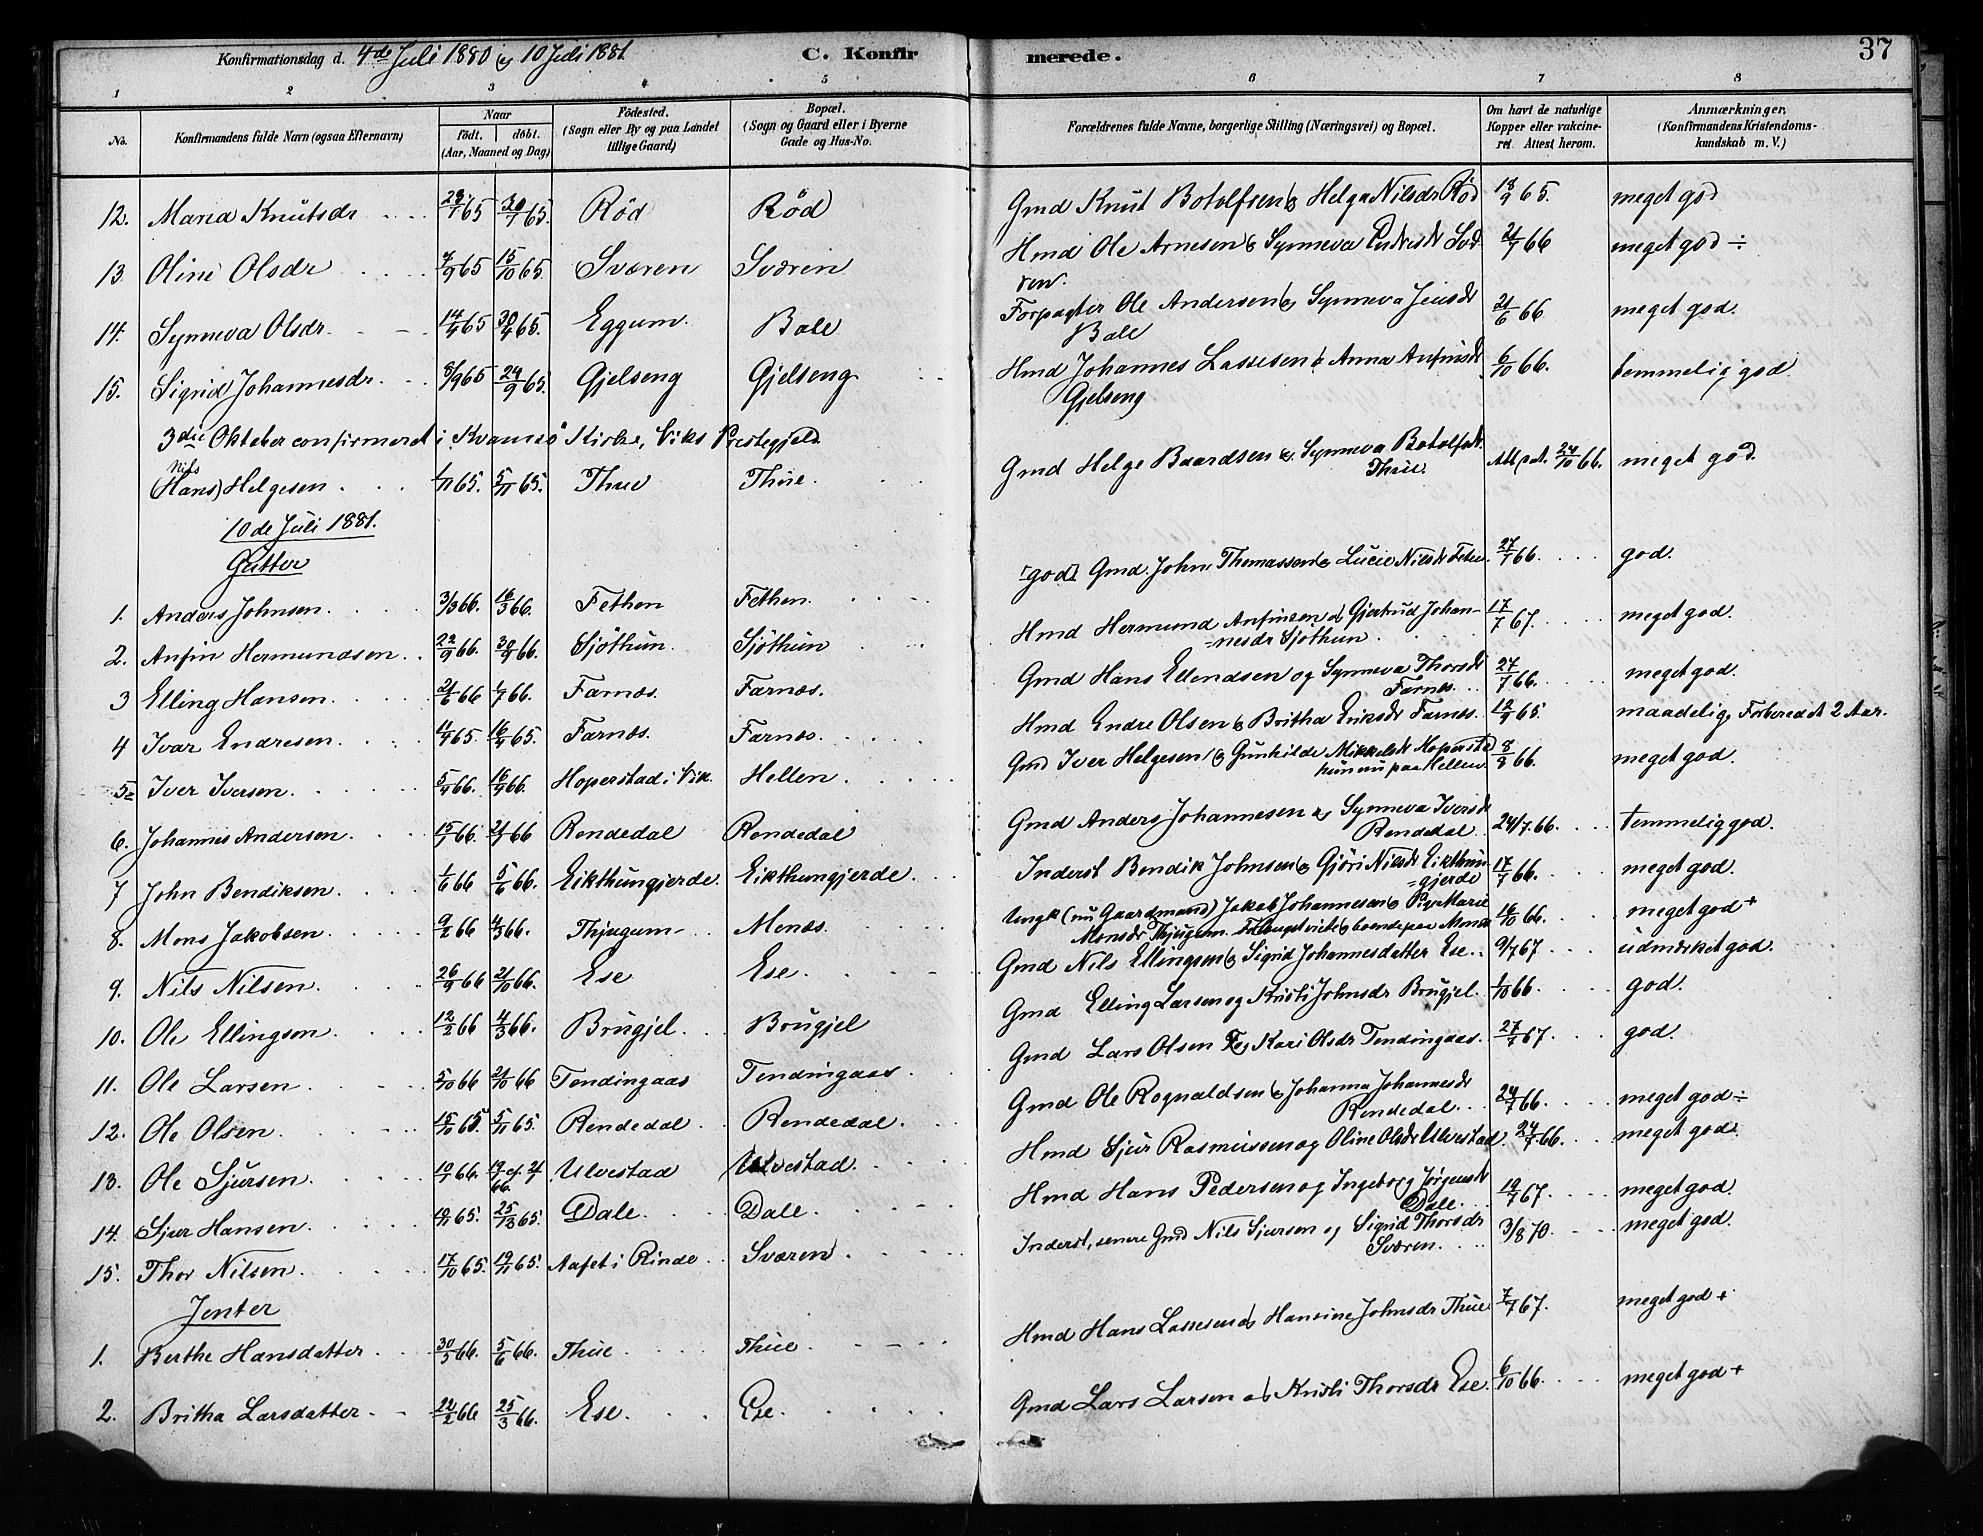 Konfirmationsdag d. 4de Juli 1880 og 10 Juli 1881. C. Konfirmerede. 37
1 2 3 4 5 6 7 8
No. Konfirmandens fulde Navn (ogsaa Efternavn) Naar født. døbt. (Aar, Maaned og Dag) Fødested. (Sogn eller By og paa Landet tillige Gaard) Bopæl. (Sogn og Gaard eller i Byerne Gade og Hus-No. Forældrenes fulde Navne, borgerlige Stilling (Næringsvei) og Bopæl. Om havt de naturlige Kopper eller vakcineret. Attest herom. Anmærkninger, (Konfirmandens Kristendomskundskab m. V.)
12. Maria Knutsdr 65 30/7 65. Rød Rød Gmd Knut Botolfsen og Helga Nilsdr Rød 18/9 65. meget god
13. Oline Olsdr 7/9 65 15/10 65. Sværen Sværen Hmd Ole Arnesen og Synneva Endresdr Sværen. 21/7 66 meget god ÷
14. Synneva Olsdr. 14/4 65 30/4 65. Eggum Bale Forpagter Ole Andersen og Synneva Jensdr Bale 21/6 66 meget god.
15. Sigrid Johannesdr. 8/9 65 24/9 65. Gjelseng Gjelseng Hmd Johannes Lassesen & Anna Anfinsdr Gjelseng 6/10 66. temmelig god
3die Oktober confirmeret i Kvamsø Kirke, Viks Prestegjeld.
Nils (Hans) Helgesen 1/11 65. 5/11 65. Thue Thue. Gmd Helge Baardsen og Synneva Botolfsdr. Thue. 24/10 66. meget god.
10de Juli 1881.
Gutter
1. Anders Johnsen. 3/3 66. 18/3 66. Fethen Fethen. [god] Gmd. John Thomassen og Lucie Nilsdr Feten. 27/7 66. god.
2. Anfin Hermundsen. 22/9 66. 30/9 66. Sjøthun. Sjøthun Hmd Hermund Anfinsen og Gjertrud Johannesdr Sjøthun 17/7 67. meget god.
3 Elling Hansen. 21/6 66 1/7 66. Farnæs. Farnæs. Gmd Hans Ellendsen og Synneva Thorsdr Farnes. 27/7 66. meget god.
4 Ivar Endresen 65. 16/4 65. Farnæs. Farnæs. Hmd Endre Olsen & Britha Eriksdr Farnes. 65. maadelig. Forberedet 2 Aar.
5. Iver Iversen. 5/4 66. 16/4 66. Hoperstad i Vik. Hellen. Gmd Iver Helgesen og Gunhilde Mikkelsdr Hoperstad hun nu paa Hellen. 8/8 66. meget god.
6. Johannes Andersen. 15/7 66. 21/7 66 Rendedal Rendedal Gmd Anders Johannesen og Synneva Iversdr Rendedal. 24/7. 66. temmelig god.
7 John Bendiksen. 1/6 66 5/6 66. Eikthungjerde. Eikthungjerde. Inderst Bendik Johnsen og Gjøri Nilsdr Eikthungjerde 17/7 66. meget god.
8. Mons Jakobsen. 9/2 66 4/3 66. Thjugum Menæs. Ungk (nu Gaardmand) Jakob Johannesen & Pige Marie Monsdr Thjugum. og boende paa Menæs 14/10 66. meget god +
9. Nils Nilsen. 26/9 66 21/10 66. Ese Ese. Gmd Nils Ellingsen og Sigrid Johannesdatter Ese. 9/7 67 udmærket god.
10. Ole Ellingsen 12/2 66 4/3 66. Brugjel. Brugjel Gmd Elling Larsen og Kristi Johnsdr Brugjel. 1/10 66. god.
11. Ole Larsen 5/10 66 21/10 66 Tendingaas Tendingaas. Gmd Lars Olsen og Kari Olsdr Tendingaas. 27/7 67. god.
12. Ole Olsen. 15/10 65 5/11 65. Rendedal. Rendedal. Gmd Ole Rognaldsen og Johanna Johannesdr Rendedal. 24/7 66. meget god ÷
13. Ole Sjursen. 10/7 66. 66. Ulvestad Ulvestad. Hmd Sjur Rasmussen og Oline Olsdr Ulvestad. 24/7 66. meget god.
14. Sjur Hansen 65. 25/12 65. Dale. Dale. Hmd Hans Pedersen og Ingeborg Jørgensdr Dale. 19/7 67. meget god.
15. Thor Nilsen. 17/10 65. 19/11 65. Aafet i Rinde Sværen. Inderst, senere Gmd Nils Sjursen og Sigrid Thorsdr Sværen. 3/8 70. meget god.
Jenter
1. Berthe Hansdatter. 30/5 66. 5/6 66. Thue Thue Hmd Hans Lassesen og Hansine Johnsdr Thue 7/7 67. meget god +
2. Britha Larsdatter. 22/2 66 25/3 66. Ese. Ese. Gmd Lars Larsen og Kristi Thorsdr Ese. 6/10 66. meget god +